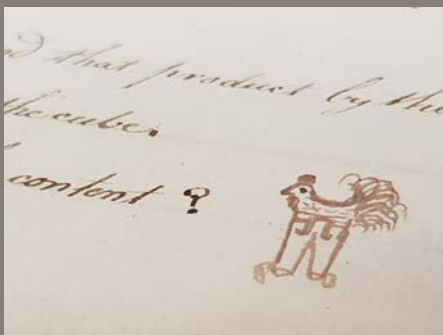 nd that product by the
the cube.
content ?